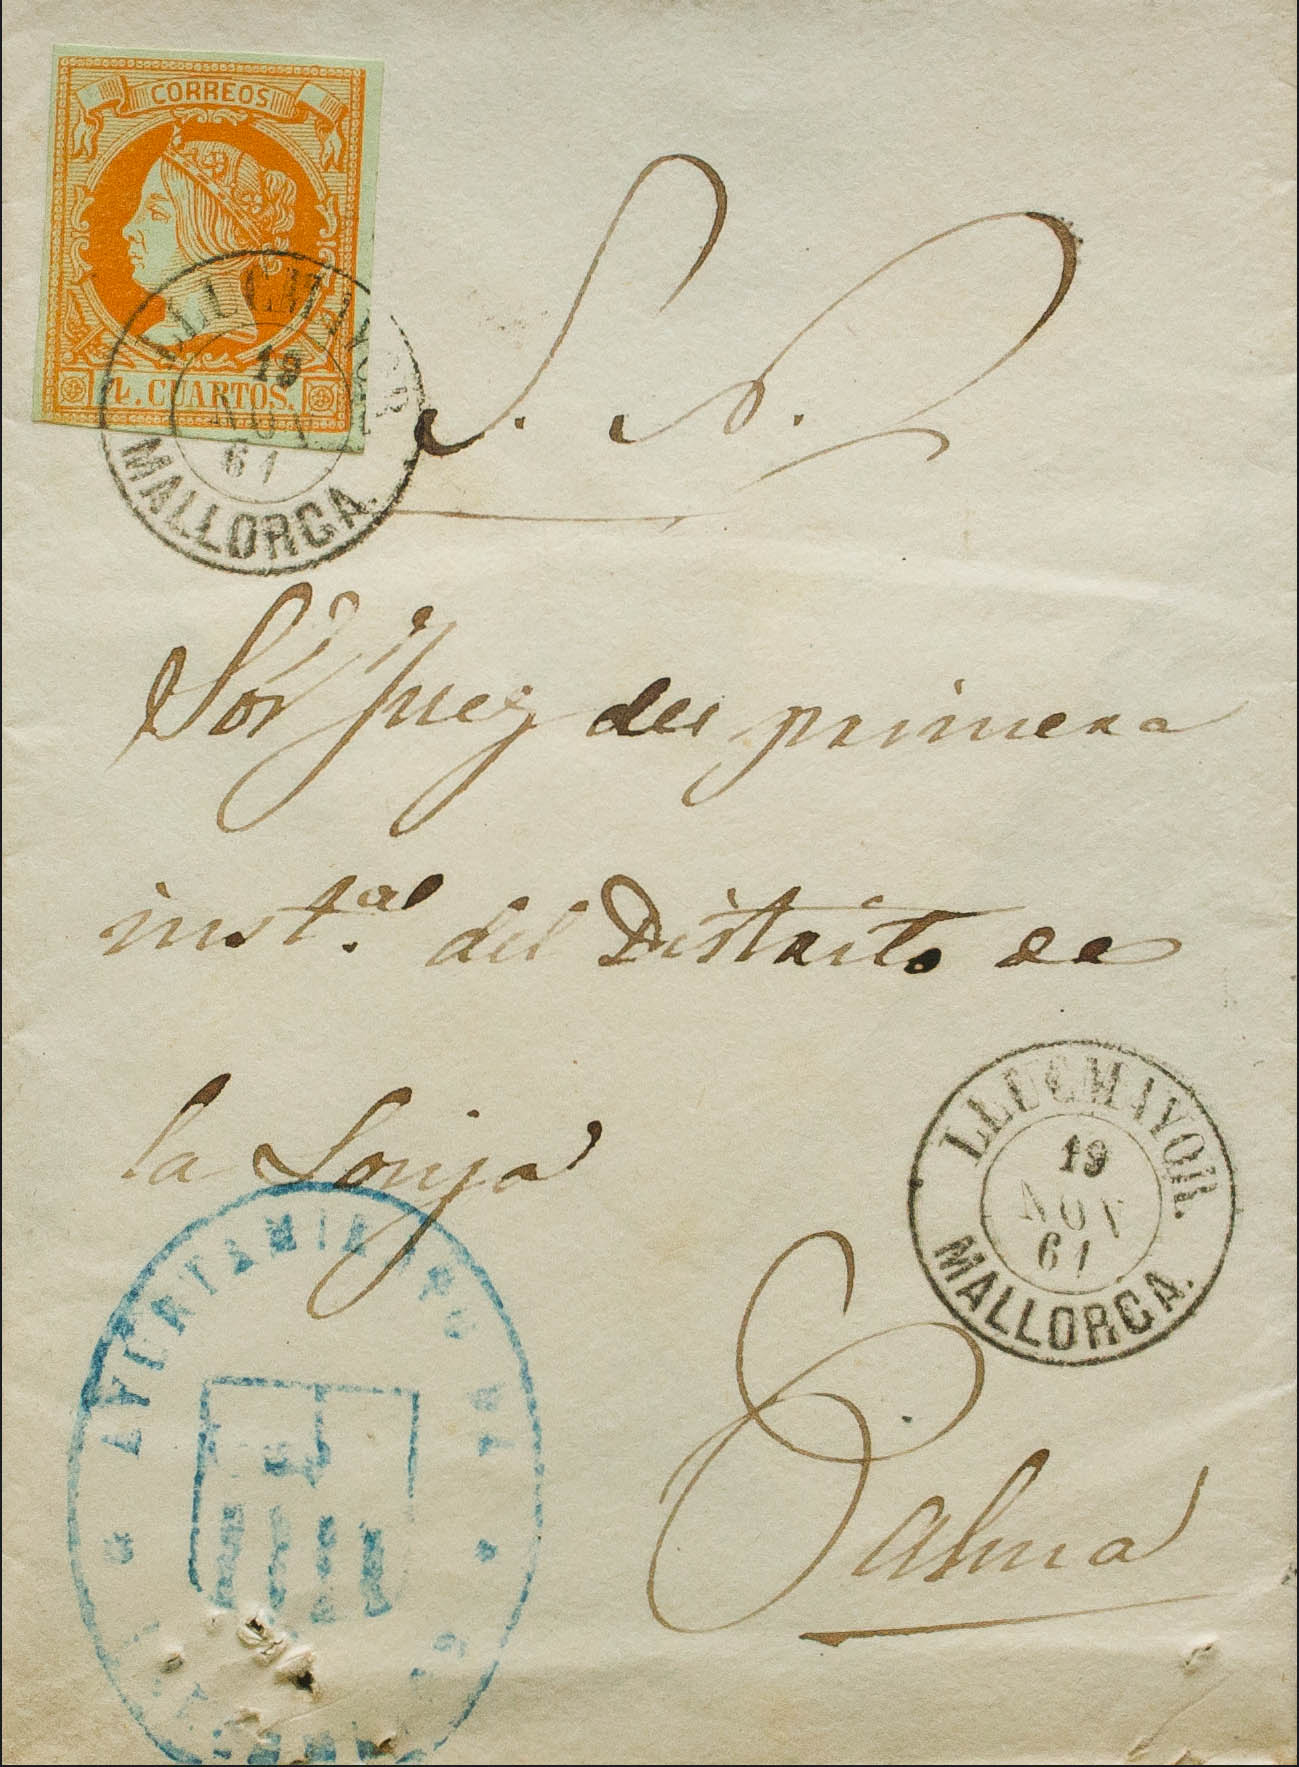 CORREOS
4. CUARTOS.
LLUCMAYOR
19
NOV
61
MALLORCA.
S. N.
Sor Juez de primera
inst.a del Distrito de
la Lonja
LLUCMAYOR.
19
NOV
61
MALLORCA.
Palma